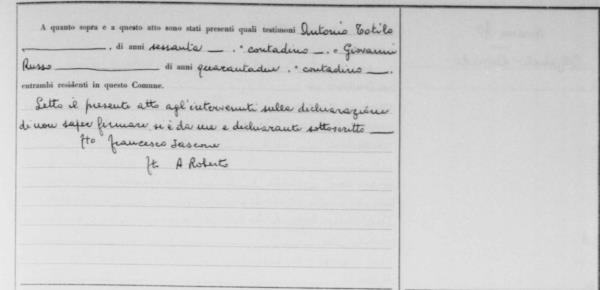 A quanto sopra e a questo atto sono stati presenti quali testimoni Antonio Totilo
, di anni sessanta , contadino , e Giovanni
Russo di anni quarantadue , contadino ,
entrambi residenti in questo Comune.
Letto il presente atto agl'intervenuti sulla dichiarazione
di non saper firmare si è da me e dichiarante sottoscritto
Fto Francesco Iascone
Ft. A Roberto